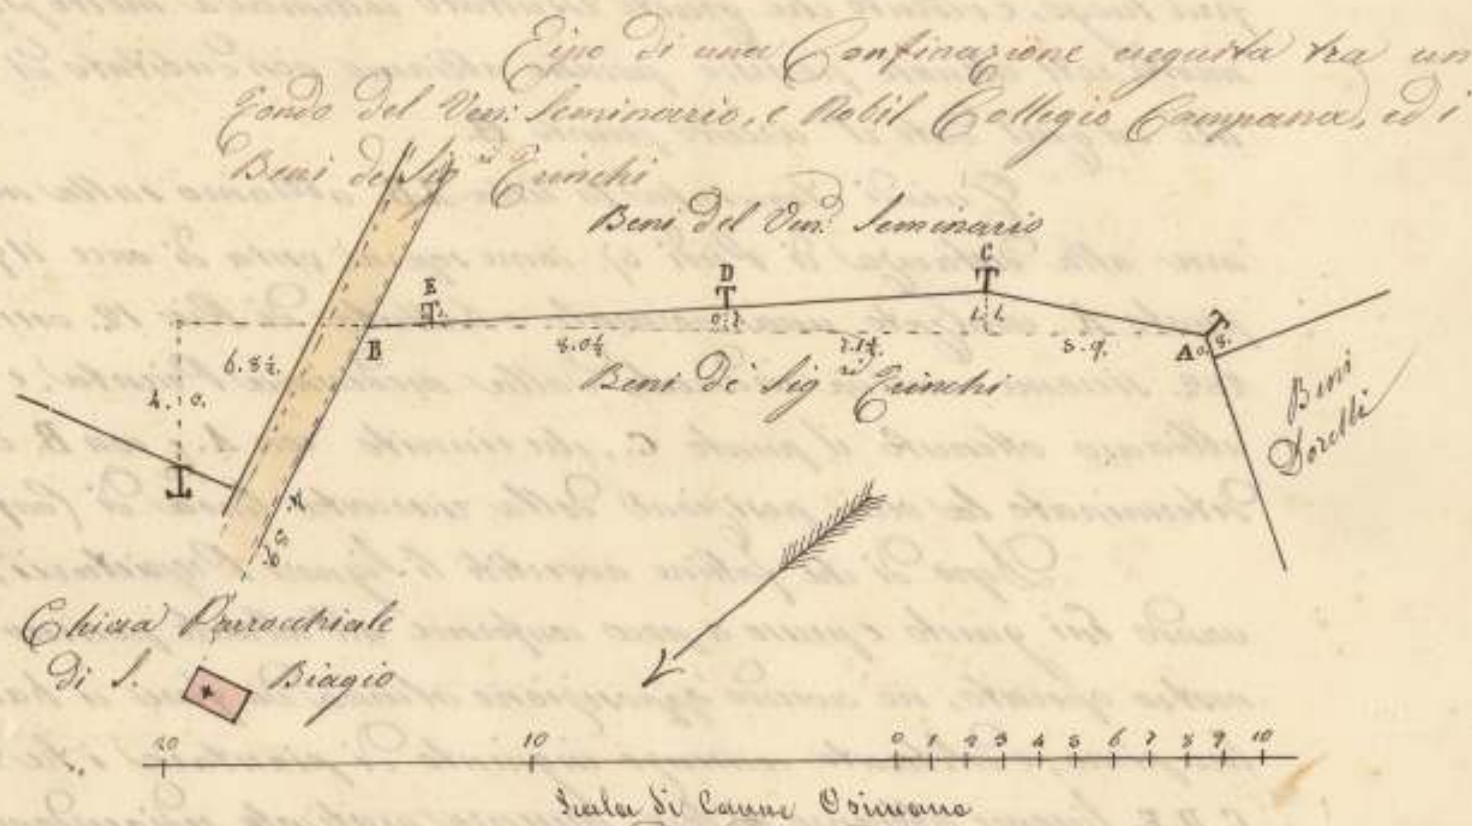 Tipo di una Confinazione eseguita tra un
Fondo del Ven: Seminario, e Nobil Collegio Campana, ed i
Beni de' Sig.ri Trinchi
Beni del Ven: Seminario
C
D
E
B
A
6. 8½
8. 0½
7. 1½
5. 9.
0. 8.
1. 1.
4. 0.
Beni de' Sig.ri Trinchi
Beni
Dorelli
Chiesa Parrocchiale
di S. Biagio
20 10 0 1 2 3 4 5 6 7 8 9 10
Scala di Canne Osimane